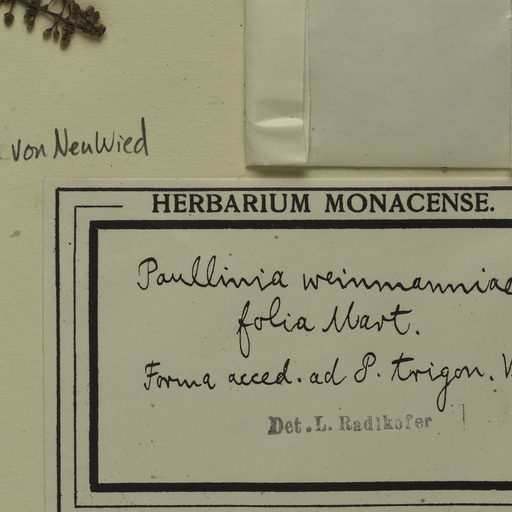 von NeuWied
HERBARIUM MONACENSE.
Paullinia weinmanniae
folia Mart.
Forma acced. ad P. trigon. V
Det. L. Radlkofer